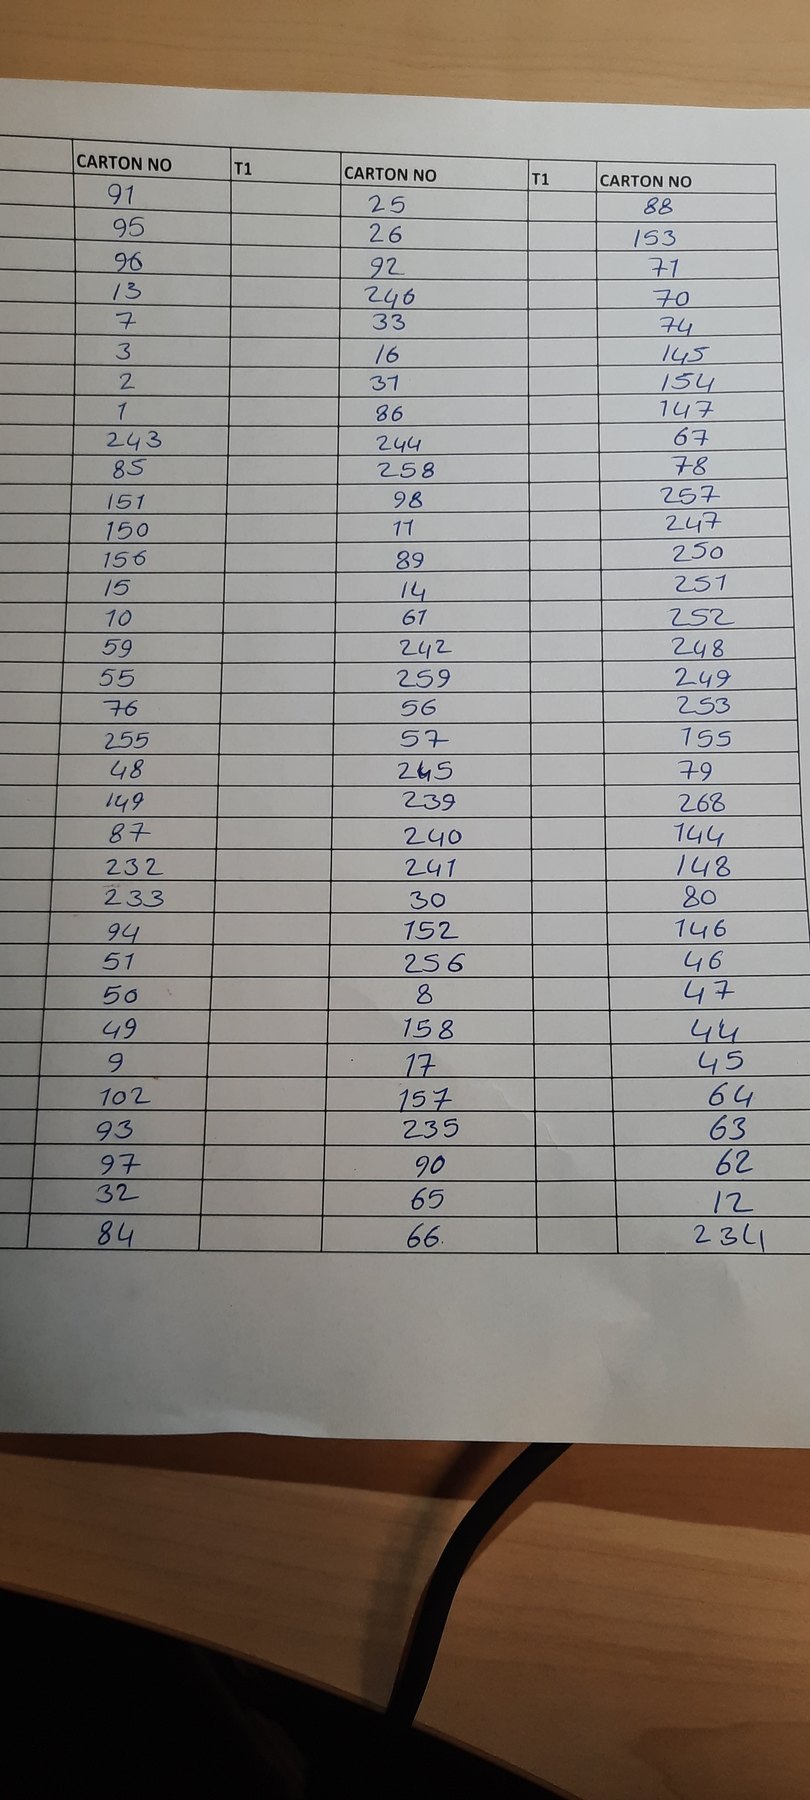 CARTON NO T1 CARTON NO T1 CARTON NO
91 25 88
95 26 153
96 92 71
13 246 70
7 33 74
3 16 145
2 31 154
1 86 147
243 244 67
85 258 78
151 98 257
150 11 247
156 89 250
15 14 251
10 61 252
59 242 248
55 259 249
76 56 253
255 57 155
48 245 79
149 239 268
87 240 144
232 241 148
233 30 80
94 152 146
51 256 46
50 8 47
49 158 44
9 17 45
102 157 64
93 235 63
97 90 62
32 65 12
84 66 234